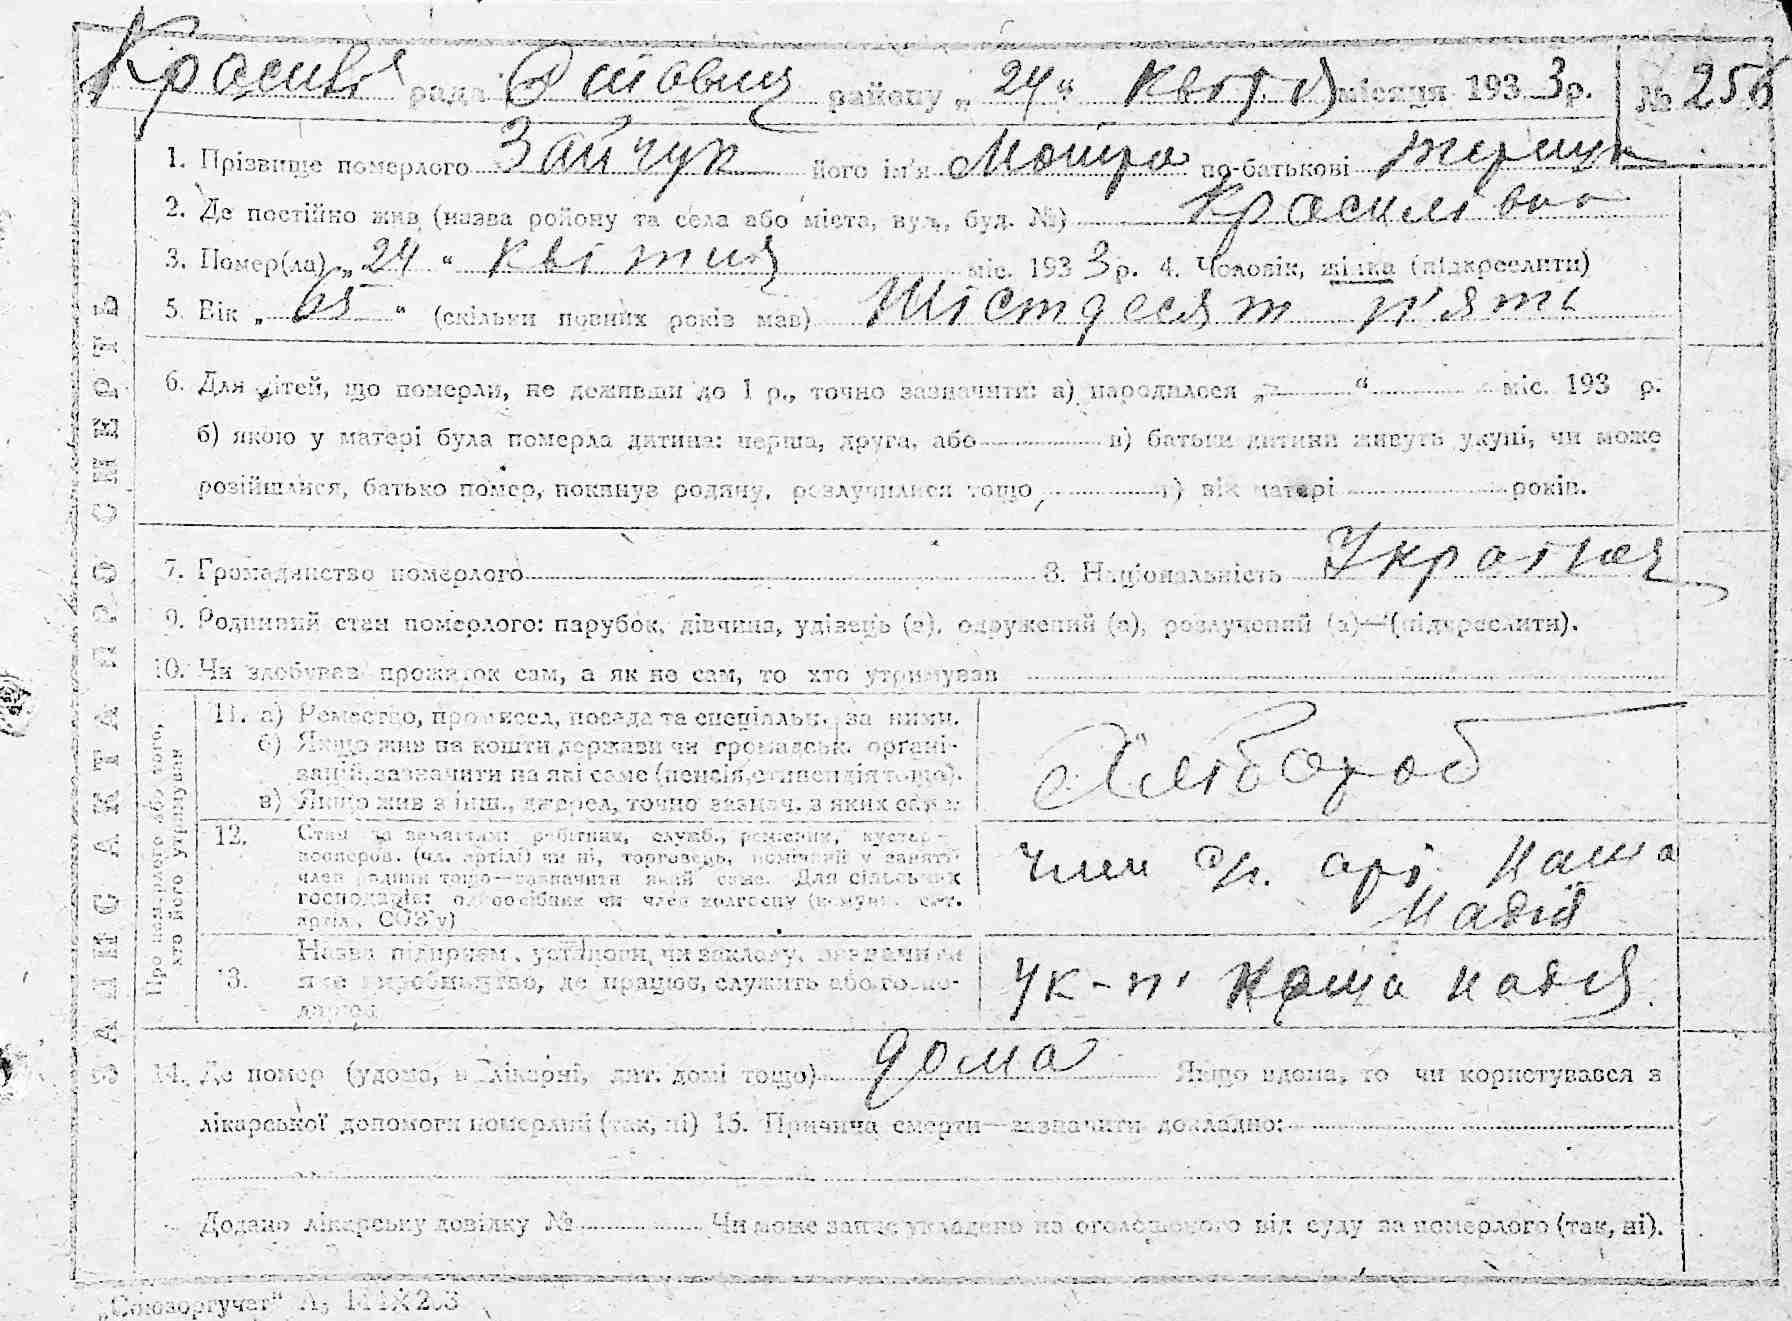 рада району „ 24 “ квітня місяця 193 3 р. № 256
1. Прізвище померлого Зайчук його ім'я Мотря по-батькові
2. Де постійно жив (назва району та села або міста, вул., буд. №) Красилівка
3. Помер(ла) „ 24 “ квітня міс. 193 3 р. 4. Чоловік, жінка (підкреслити)
5. Вік „ 65 “ (скільки повних років мав) Шістдесят п'ять
6. Для дітей, що померли, не доживши до 1 р., точно зазначити: а) народилося „ “ міс. 193 р.
б) якою у матері була померла дитина: перша, друга, або в) батьки дитини живуть укупі, чи може
розійшлися, батько помер, покинув родину, розлучилися тощо, г) вік матері років.
7. Громадянство померлого 8. Національність
9. Родинний стан померлого: парубок, дівчина, удівець (а), одружений (а), розлучений (а)—(підкреслити).
10. Чи здобував прожиток сам, а як не сам, то хто утримував
ЗАПИС АКТА ПРО СМЕРТЬ
Про померлого або того,
хто його утримував
11. а) Ремество, промисел, посада та спеціяльн. за ними.
б) Якщо жив на кошти держави чи громадськ. органі-
зацій, зазначити на які саме (пенсія, стипендія тощо).
в) Якщо жив з інш. джерел, точно зазнач. з яких саме
Хлібороб
12. Стан за заняттям: робітник, служб., ремісник, кустар—
кооперов. (чл. артілі) чи ні, торговець, помічний у занятті
член родини тощо—зазначити який саме. Для сільських
господарів: одноосібник чи член колгоспу (комуни, с-г.
артіл., СОЗ'у)
член арт. Наша
Надія
13. Назва підприєм., установи, чи закладу,
яке виробництво, де працює, служить або госпо-
дарює
Наша надія
14. Де помер (удома, в лікарні, дит. домі тощо) дома Якщо вдома, то чи користувався з
лікарської допомоги померлий (так, ні) 15. Причина смерти—зазначити докладно:
Додано лікарську довідку № Чи може запис укладено на оголошеного від суду за померлого (так, ні).
„Союзоргучет“